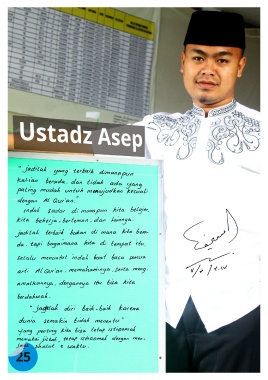 Ustadz Asep
"Jadilah yang terbaik dimanapun
kalian berada. dan tidak ada yang
paling mudah untuk mewujudkan kecuali
dengan Al Qur'an."
Indah sadar di manapun kita belajar,
kita bekerja, berteman dan lainnya.
jadilah terbaik bukan di mana kita bera-
da. tapi bagaimana kita di tempat itu.
Selalu mencatat indah buat baca semua
arti Al Qur'an. memahaminya, serta meng-
amalkannya, dengannya itu bisa kita
berdakwah.
"Jadilah diri baik-baik karena
dunia semakin tidak menentu"
yang penting kita bisa tetap istiqomah
memakai jilbab, tetap istiqomah dengan men-
jadi shalat 5 waktu.
25